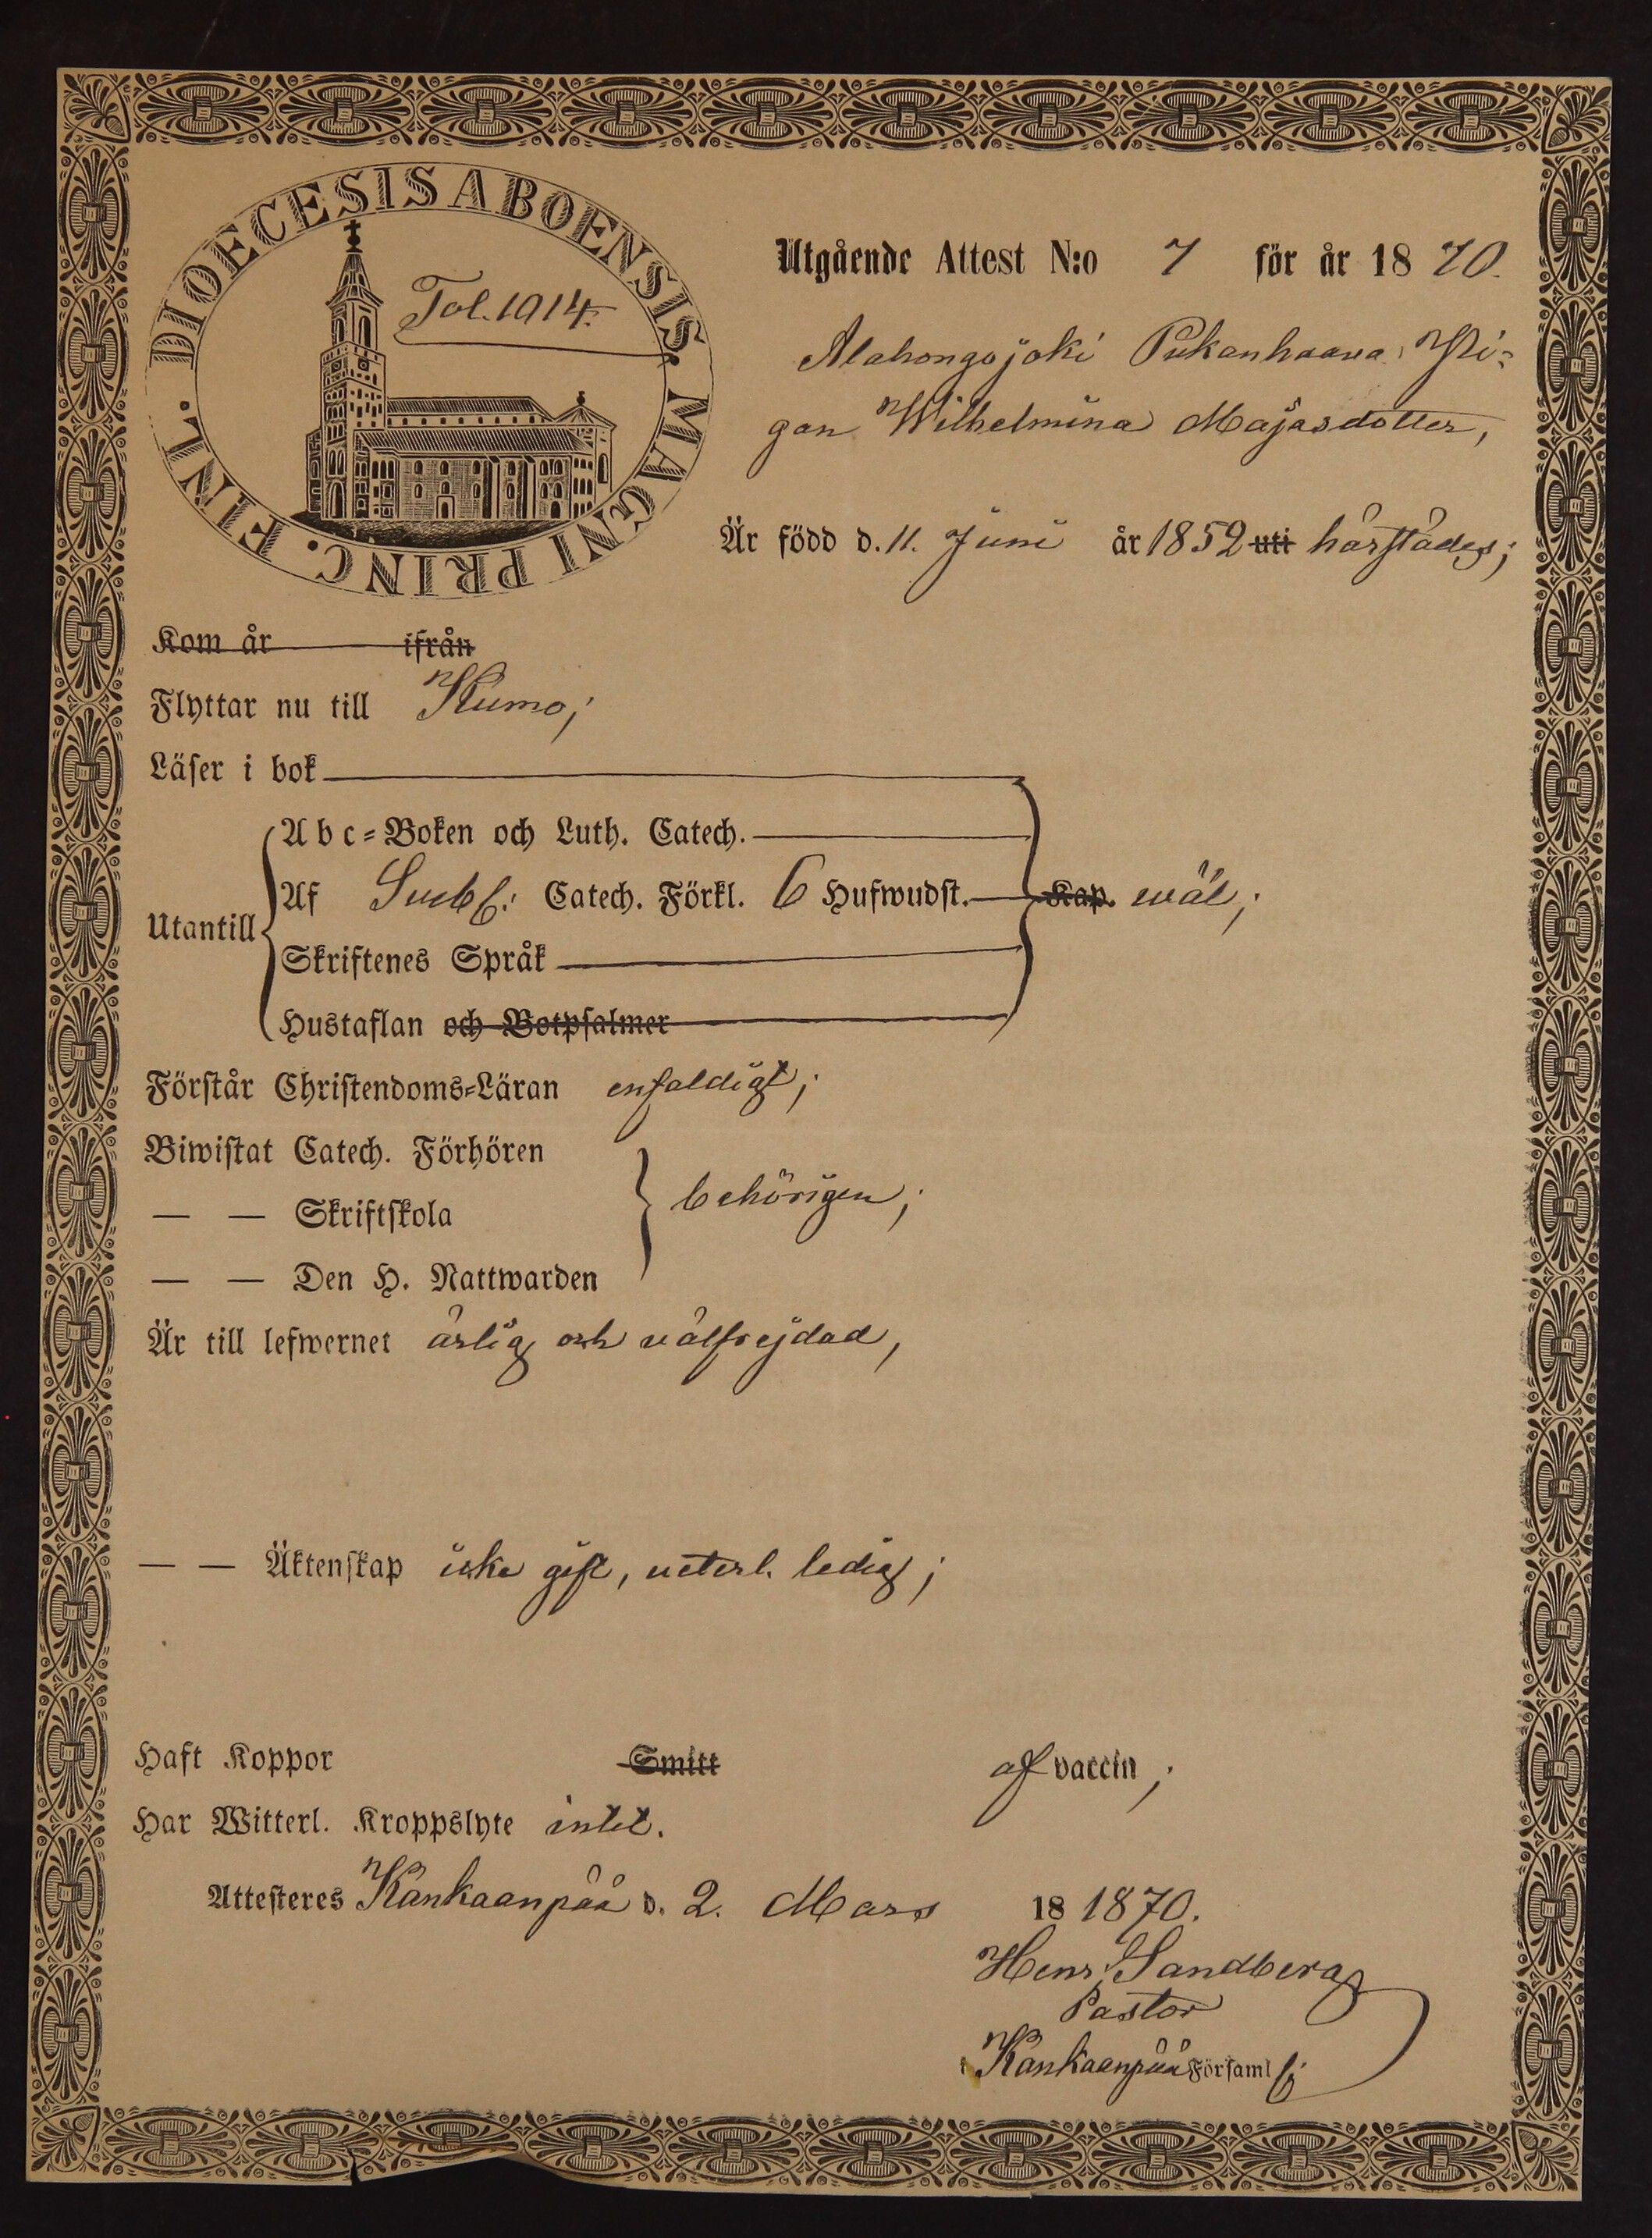 DIOECESIS ABOENSIS. MAGNI PRINC. FINL.
Fol. 1914.
Utgående Attest N:o 7 för år 1870.
Alahongojoki Pukanhaava Pi-
gan Wilhelmina Majasdotter,
Är född d. 11. Juni år 1852 uti härstädes;
Kom år ifrån
Flyttar nu till Kumo;
Läser i bok
Abc-Boken och Luth. Catech.
Utantill Af Svebil: Catech. Förkl. 6 Hufwudst. Kap. wäl;
Skriftenes Språk
Hustaflan och Botpsalmer
Förstår Christendoms-Läran enfaldigt;
Biwistat Catech. Förhören
— — Skriftskola behörigen;
— — Den H. Nattwarden
Är till lefwernet ärlig och välfrejdad,
— — Äktenskap icke gift, veterl. ledig;
Haft Koppor Smitt af vaccin;
Har Witterl. Kroppslyte intet.
Attesteres Kankaanpää d. 2. Mars 18 1870.
Henr. Sandberg
Pastor
i Kankaanpää Församl: